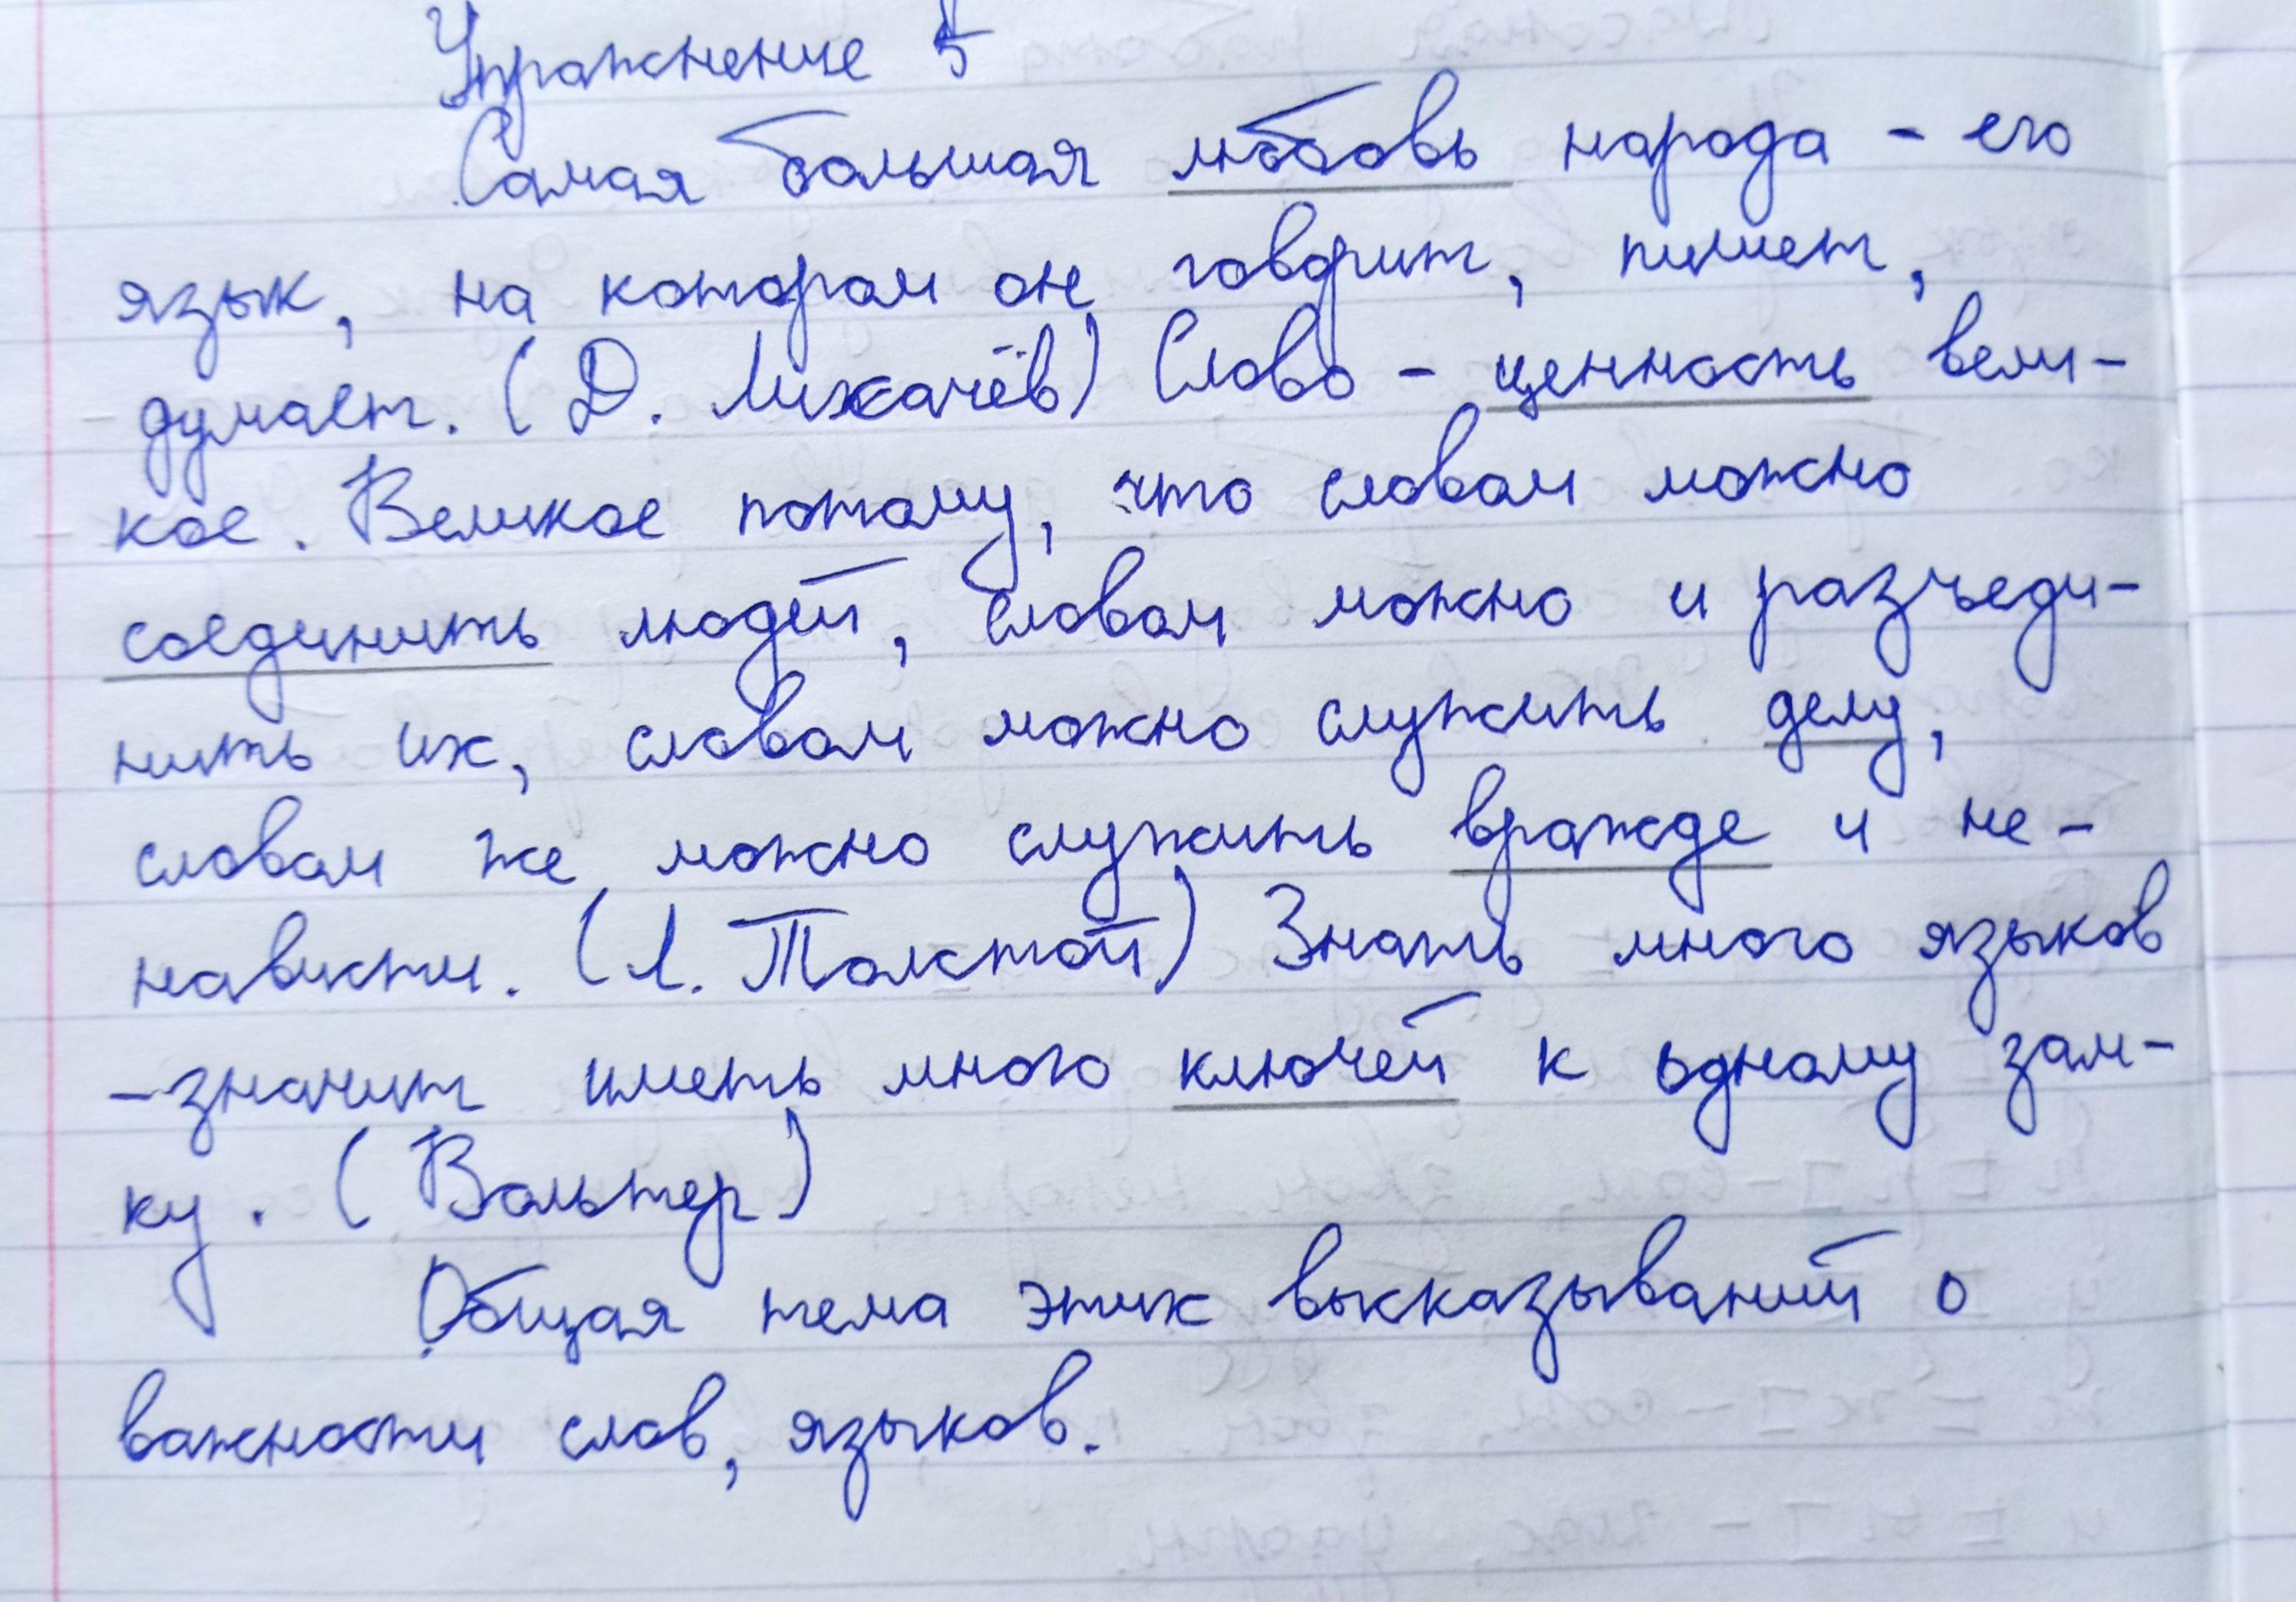 Упражнение 5
Самая большая любовь народа - его
язык, на котором он говорит, пишет,
думает. (Д. Лихачёв) Слово - ценность вели-
кое. Великое потому, что словом можно
соединить людей, словом можно и разъеди-
нить их, словом можно служить делу,
словом же можно служить вражде и не-
нависти. (Л. Толстой) Знать много языков
-значит иметь много ключей к одному зам-
ку. (Вольтер)
Общая тема этих выкказываний о
важности слов, языков.